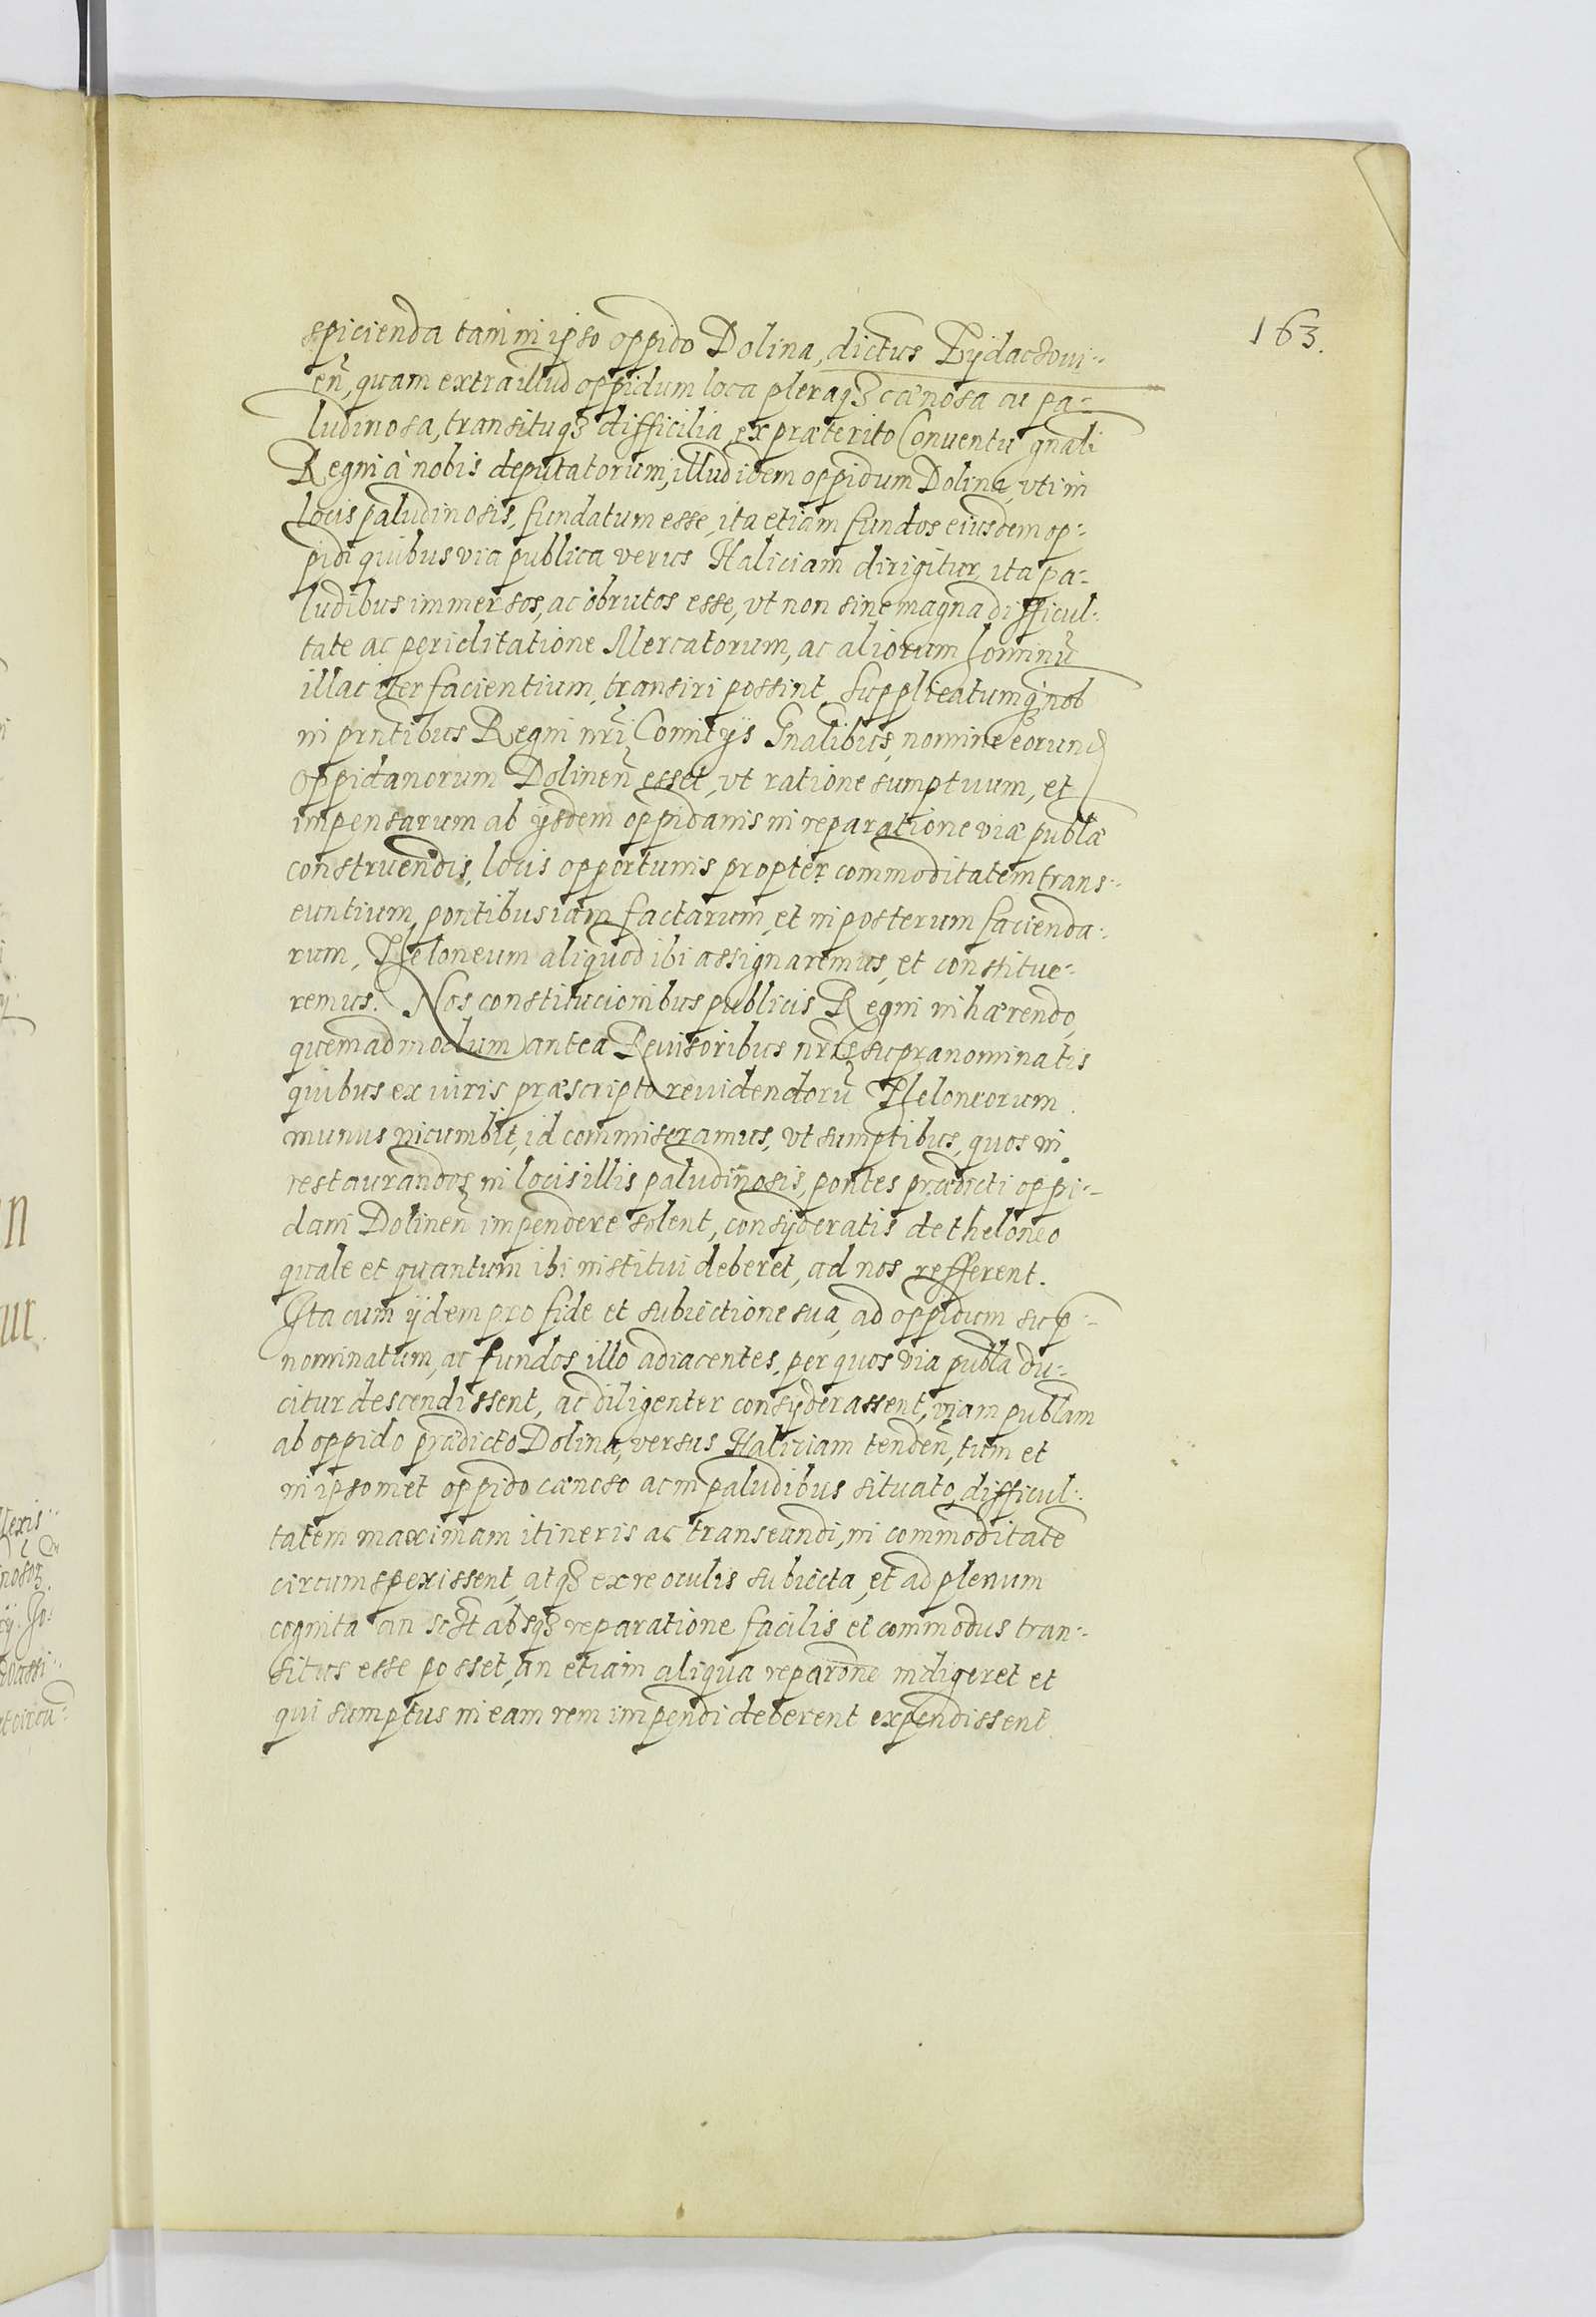 163.
spicienda tam in ipso oppido Dolina, dictus Zydaczoui-
eñ, quam extra illud oppidum loca pleraq3 cænosa ac pa-
ludinosa, transituq3 difficilia, ex præterito Conventu gnali
Regni à nobis deputatorum, illud idem oppidum Dolina, vti in
locis paludinosis, fundatum esse, ita etiam fundos eiusdem op-
pidi quibus via publica versus Haliciam dirigitur, ita pa-
ludibus immersos, ac obrutos esse, vt non sine magna difficul-
tate ac periclitatione Mercatorum, ac aliorum hominū
illac iter facientium, transiri possint. Supplicatumq3 nob
in prntibus Regni nri Comitijs Gnalibus, nomine eorund
oppidanorum Dolineñ esset, vt ratione sumptuum, et
impensarum ab ijsdem oppidanis in reparatione viæ publæ
construendis, locis opportunis propter commoditatem trans-
euntium, pontibus iam factarum, et in posterum facienda-
rum, Theloneum aliquod ibi assignaremus, et constitue-
remus. Nos constitucionibus publicis Regni inhærendo,
quemadmodum antea Reuisoribus nris supranominatis
quibus ex iuris præscripto reuidendorū Theloneorum
munus incumbit, id commiseramus, vt sumptibus, quos in
restaurandos in locis illis paludinosis, pontes prædicti oppi-
dani Dolineñ impendere solent, consyderatis de theloneo
quale et quantum ibi institui deberet, ad nos refferent.
Ita cum ijdem pro fide et subiectione sua, ad oppidum sup-
nominatum, ac fundos illo adiacentes, per quos via publa du-
citur descendissent, ac diligenter consyderassent, viam publam
ab oppido prædicto Dolina, versus Haliciam tendeñ, tum et
in ipsomet oppido cænoso ac in paludibus situato, difficul-
tatem maximam itineris ac transeundi, in commoditate
circumspexissent, atq3 ex re oculis subiecta, et ad plenum
cognita an scȝt absq3 reparatione facilis et commodus tran-
situs esse posset, an etiam aliqua reparone indigeret et
qui sumptus in eam rem impendi deberent expendissent